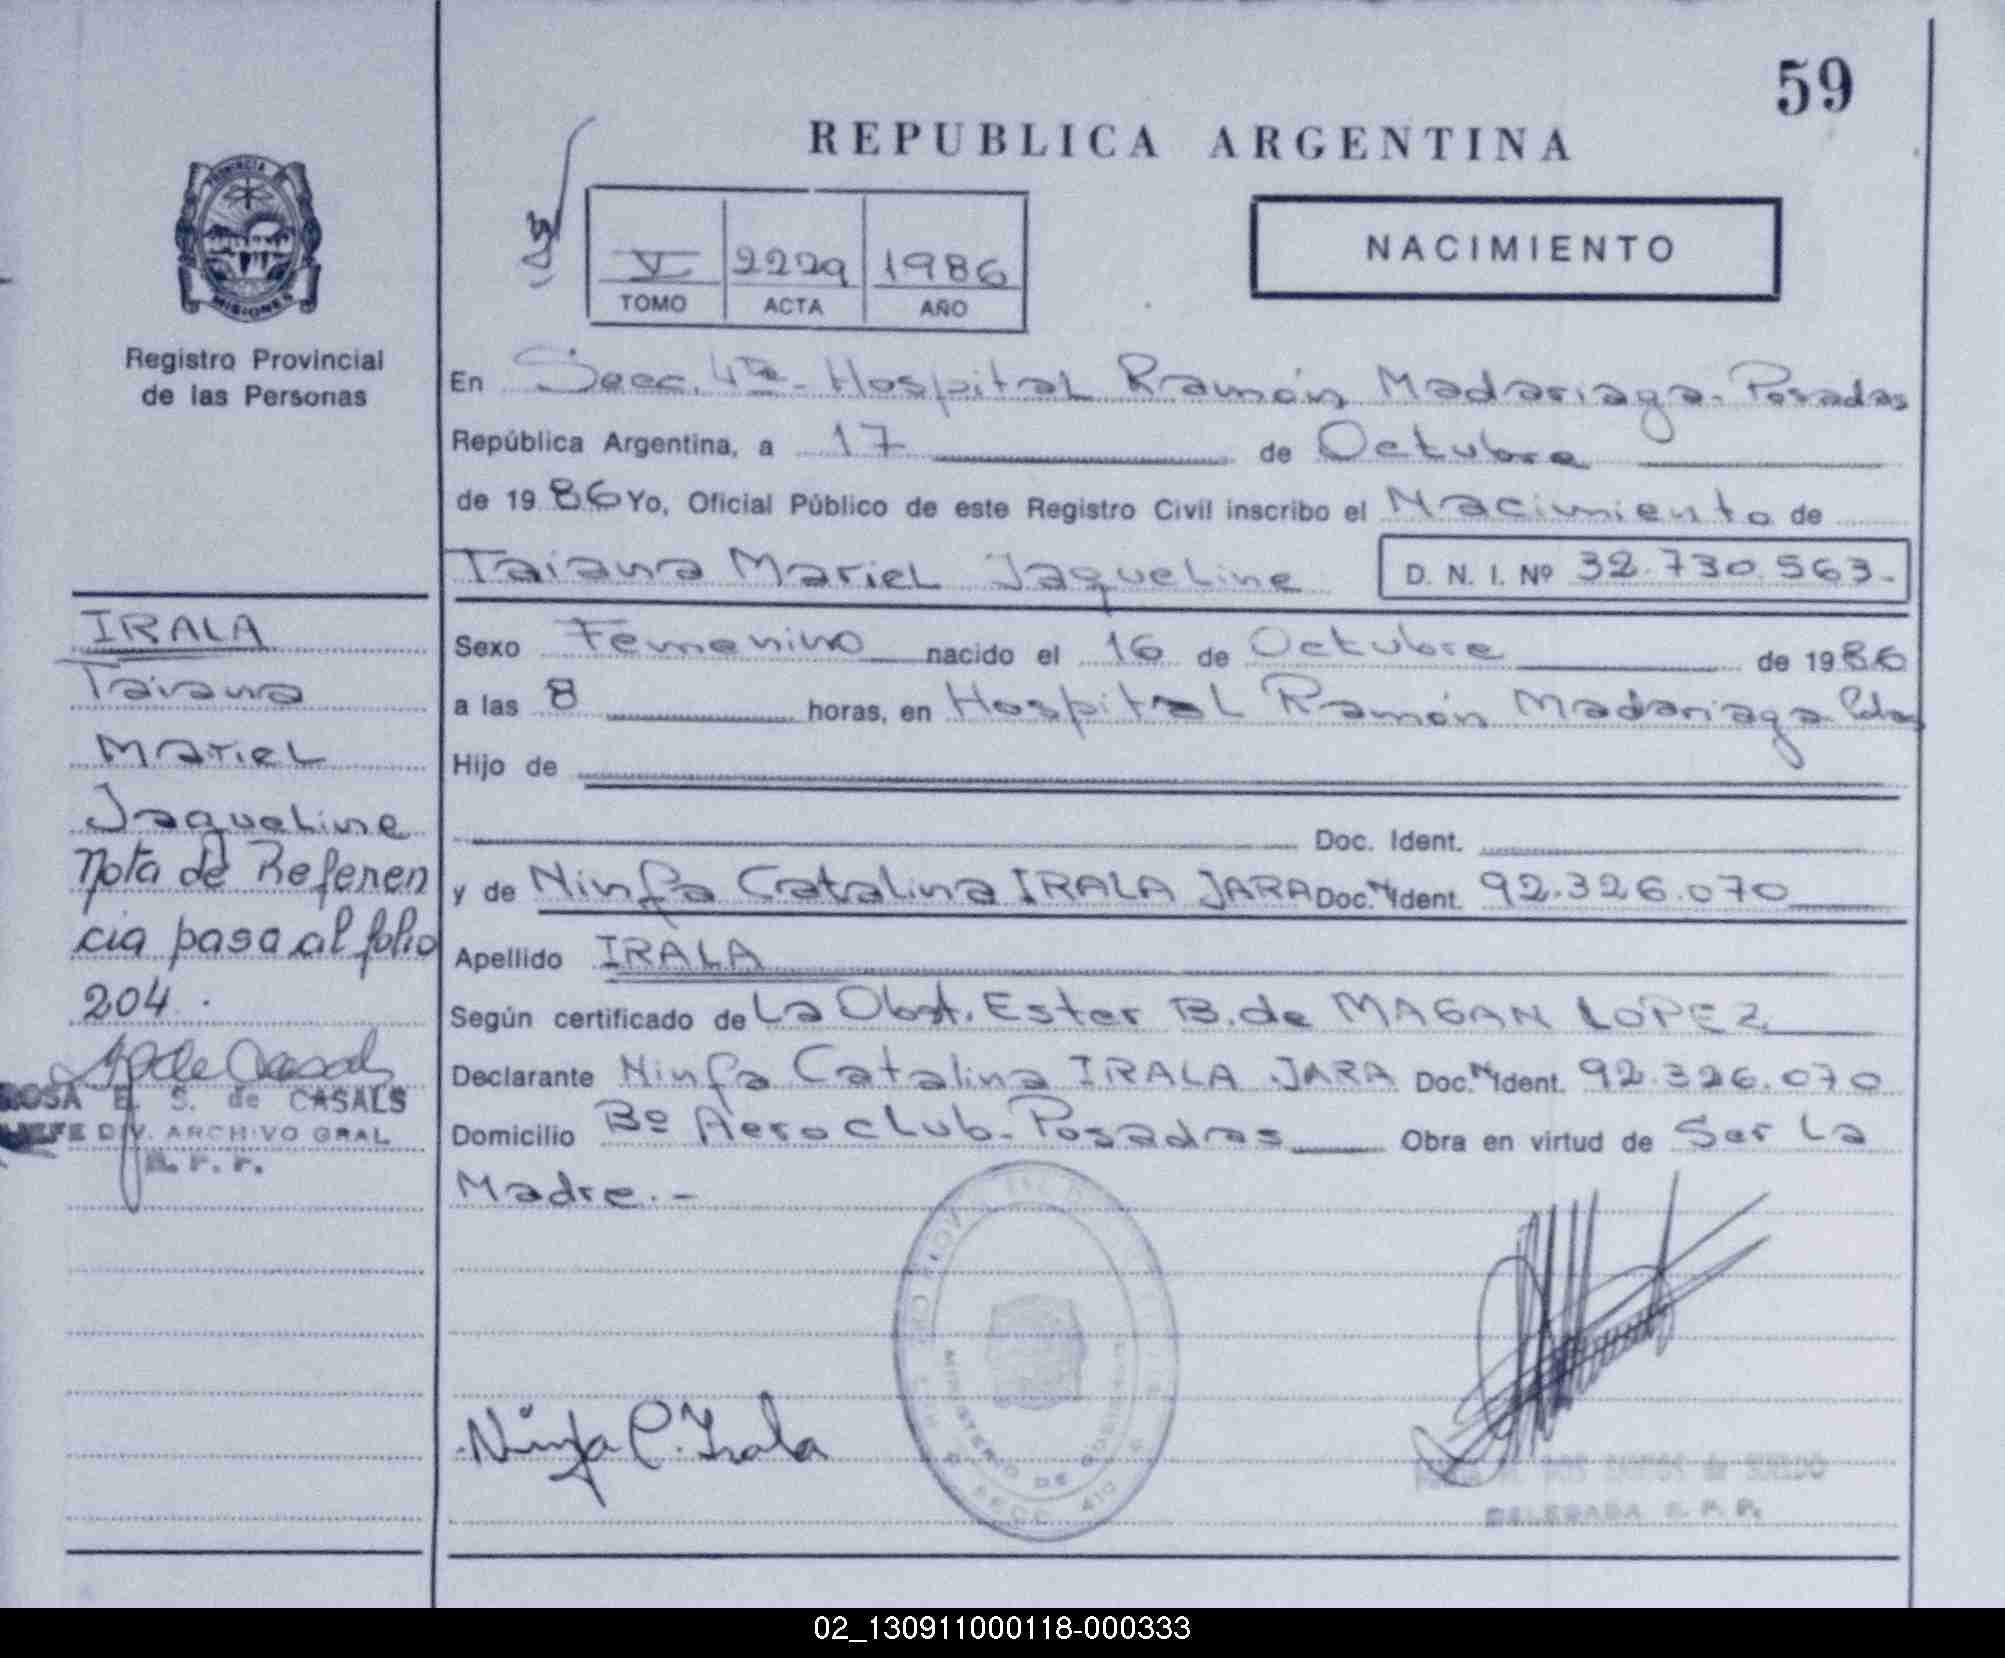 59
REPUBLICA ARGENTINA
PROVINCIA
MISIONES
Registro Provincial
de las Personas
V 2229 1986
TOMO ACTA AÑO
NACIMIENTO
En Secc. 4ta - Hospital Ramón Madariaga - Posadas
República Argentina, a 17 de Octubre
de 1986 Yo, Oficial Público de este Registro Civil inscribo el Nacimiento de
Taiana Mariel Jaqueline D. N. I. Nº 32.730.563.-
Sexo Femenino nacido el 16 de Octubre de 1986
a las 8 horas, en Hospital Ramón Madariaga Pdas
Hijo de
Doc. Ident.
y de Ninfa Catalina IRALA JARA Doc. Ident. 92.326.070
Apellido IRALA
Según certificado de La Obst. Ester B. de MAGAN LOPEZ
Declarante Ninfa Catalina IRALA JARA Doc. Ident. 92.326.070
Domicilio Bº Aeroclub - Posadas Obra en virtud de Ser La
Madre.-
IRALA
Taiana
Mariel
Jaqueline
Nota de Referen
cia pasa al folio
204.
ROSA E. S. de CASALS
JEFE DIV. ARCHIVO GRAL
R. P. P.
Ninfa C. Irala
MINISTERIO DE GOBIERNO
DOS SANTOS de SUELDO
DELEGADA R. P. P.
02_130911000118-000333